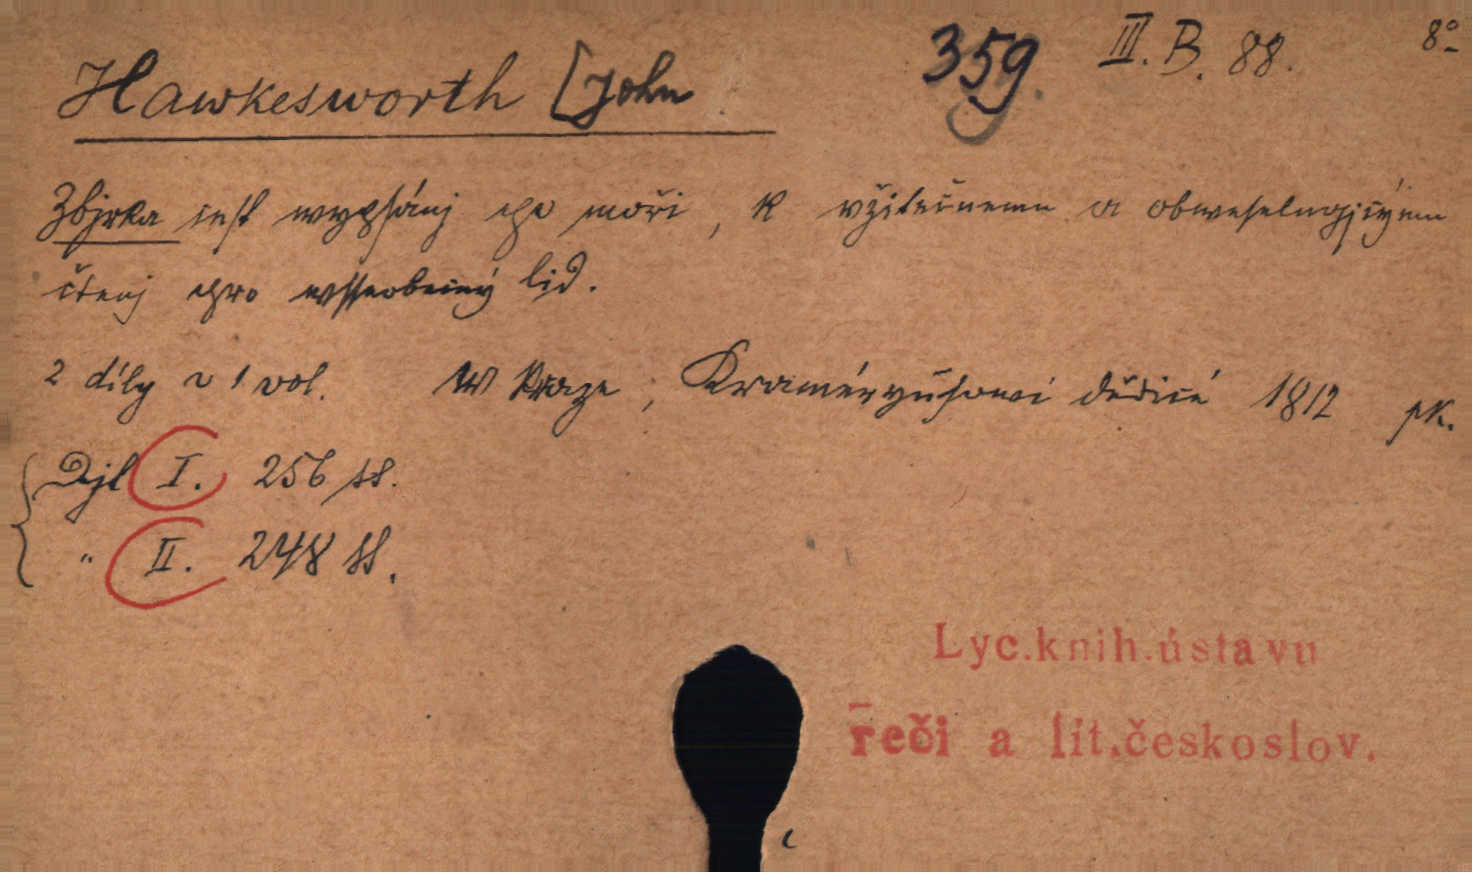 Hawkesworth [John
359. III. B. 88. 8°
Zbjrka cest wypsánj po moři, k vžitečnemu a obweselugjcýmu
čtenj pro wsseobecný lid.
2 díly v 1 vol. W Praze, Kraméryusowi dědicé 1812 pk.
Djl I. 256 ss.
„ II. 248 ss.
Lyc.knih.ústavu
řeči a lit.českoslov.